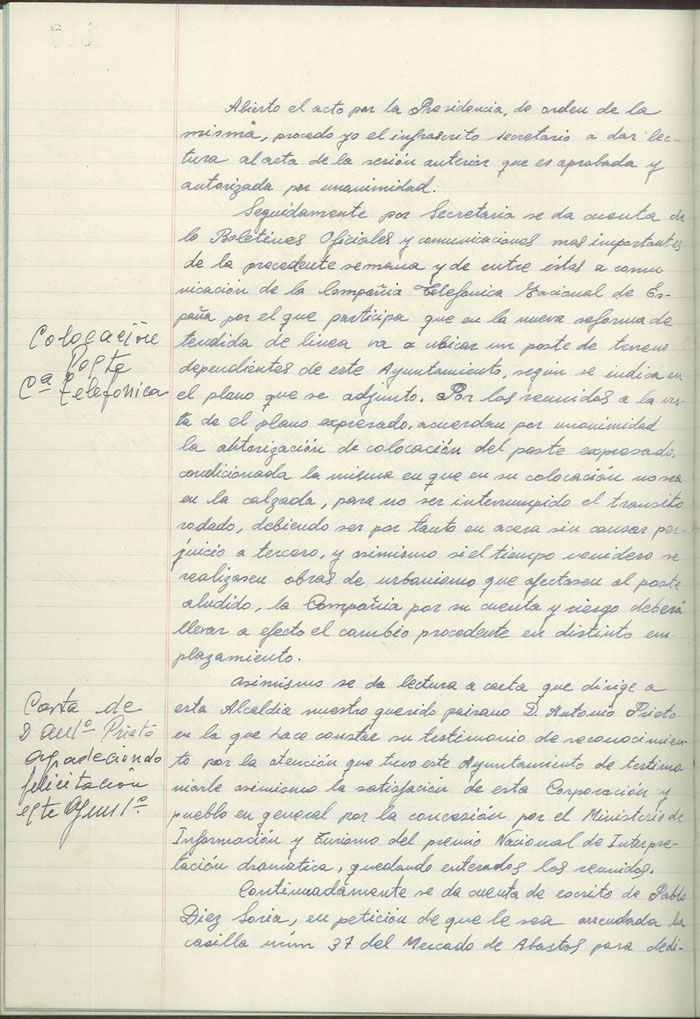 Abierto el acto por la Presidencia, de orden de la
misma, procedo yo el infrascrito secretario a dar lec-
tura al acta de la sesión anterior que es aprobada y
autorizada por unanimidad.
Seguidamente por Secretaria se da cuenta de
lo Boletines Oficiales y comunicaciones mas importantes
de la precedente semana y de entre éstas a comu
nicación de la Compañia Telefonica Nacional de Es-
paña por el que participa que en la nueva reforma de
Colocación
Poste
Cª Telefónica
tendida de linea va a ubicar un poste de terreno
dependientes de este Ayuntamiento, según se indica en
el plano que se adjunto. Por los reunidos a la vis-
ta de el plano expresado, acuerdan por unanimidad
la autorización de colocación del poste expresado,
condicionada la misma en que en su colocación no sea
en la calzada, para no ser interrumpido el transito
rodado, debiendo ser por tanto en acera sin causar per-
juicio a tercero, y asimismo si el tiempo venidero se
realizasen obras de urbanismo que afectasen al poste
aludido, la Compañia por su cuenta y riesgo deberá
llevar a efecto el cambio procedente en distinto em-
plazamiento.
Carta de
D. Antº Prieto
agradeciendo
felicitación
este Ayuntº
Asimismo se da lectura a carta que dirige a
esta Alcaldia nuestro querido paisano D. Antonio Prieto
en la que hace constar su testimonio de reconocimien-
to por la atención que tuvo este Ayuntamiento de testimo
niarle asimismo la satisfación de esta Corporación y
pueblo en general por la concesión por el Ministerio de
Información y Turismo del premio Nacional de Interpre-
tación dramatica, quedando enterados los reunidos.
Continuadamente se da cuenta de escrito de Pablo
Diez Soria, en petición de que le sea arrendada la
casilla núm 37 del Mercado de Abastos para dedi-